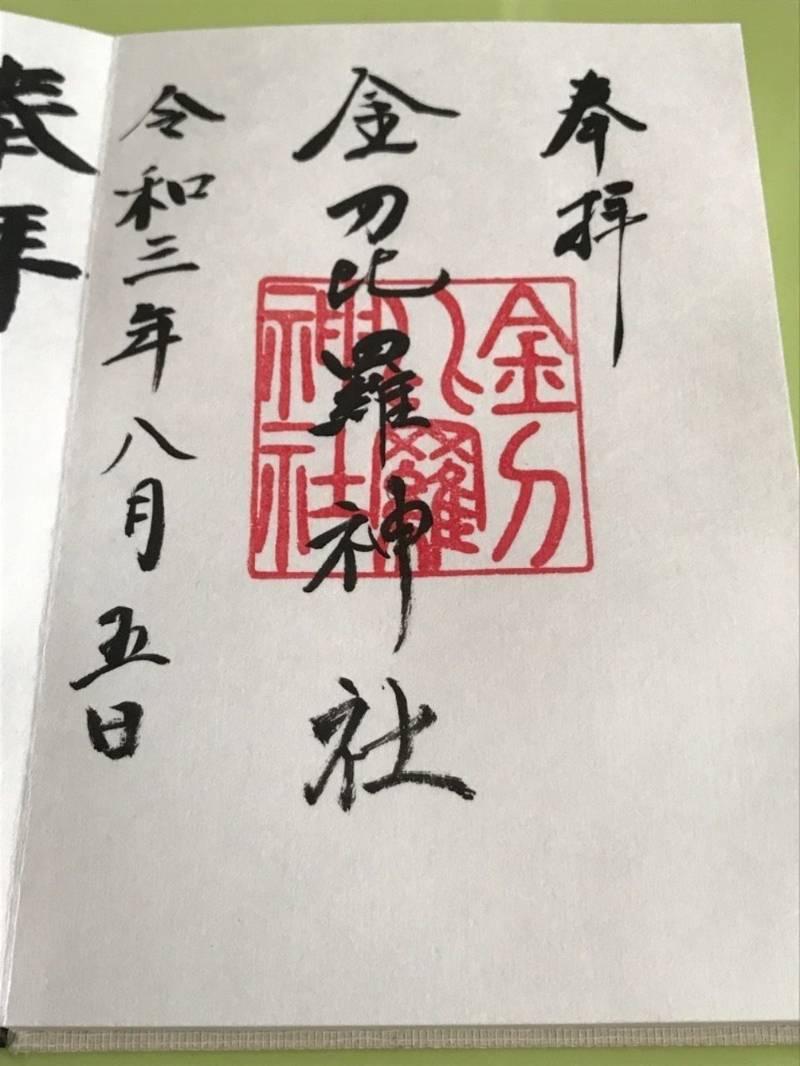 奉拝
金刀比羅神社
金刀比羅神社
令和三年八月五日
奉拝